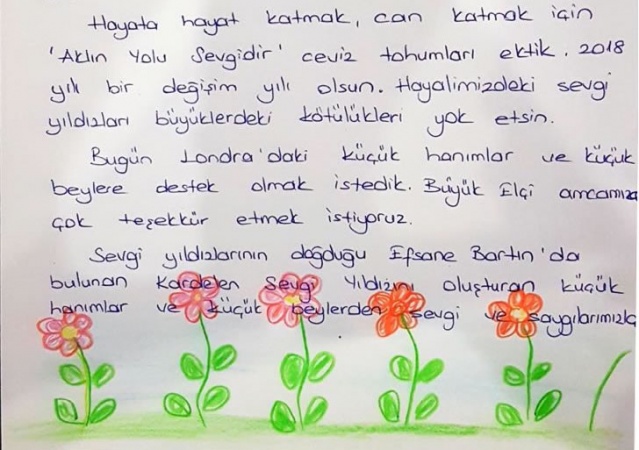 Hayata hayat katmak, can katmak için
'Aklın Yolu Sevgidir' ceviz tohumları ektik. 2018
yılı bir değişim yılı olsun. Hayalimizdeki sevgi
yıldızları büyüklerdeki kötülükleri yok etsin.
Bugün Londra'daki küçük hanımlar ve küçük
beylere destek olmak istedik. Büyük Elçi amcamıza
çok teşekkür etmek istiyoruz.
Sevgi yıldızlarının doğduğu Efsane Bartın'da
bulunan Kardelen Sevgi Yıldızını oluşturan küçük
hanımlar ve küçük beylerden sevgi ve saygılarımızla